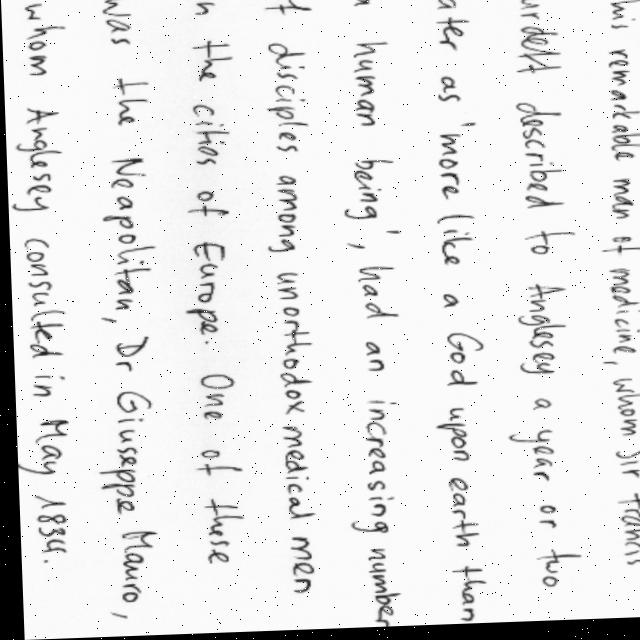 his remarkable man of medicine, whom Sir Francis
described to Anglesey a year or two
as 'more like a God upon earth than
human being', had an increasing number
disciples among unorthodox medical men
the cities of Europe. One of these
was the Neapolitan, Dr Giuseppe Mauro,
whom Anglesey consulted in May 1834.